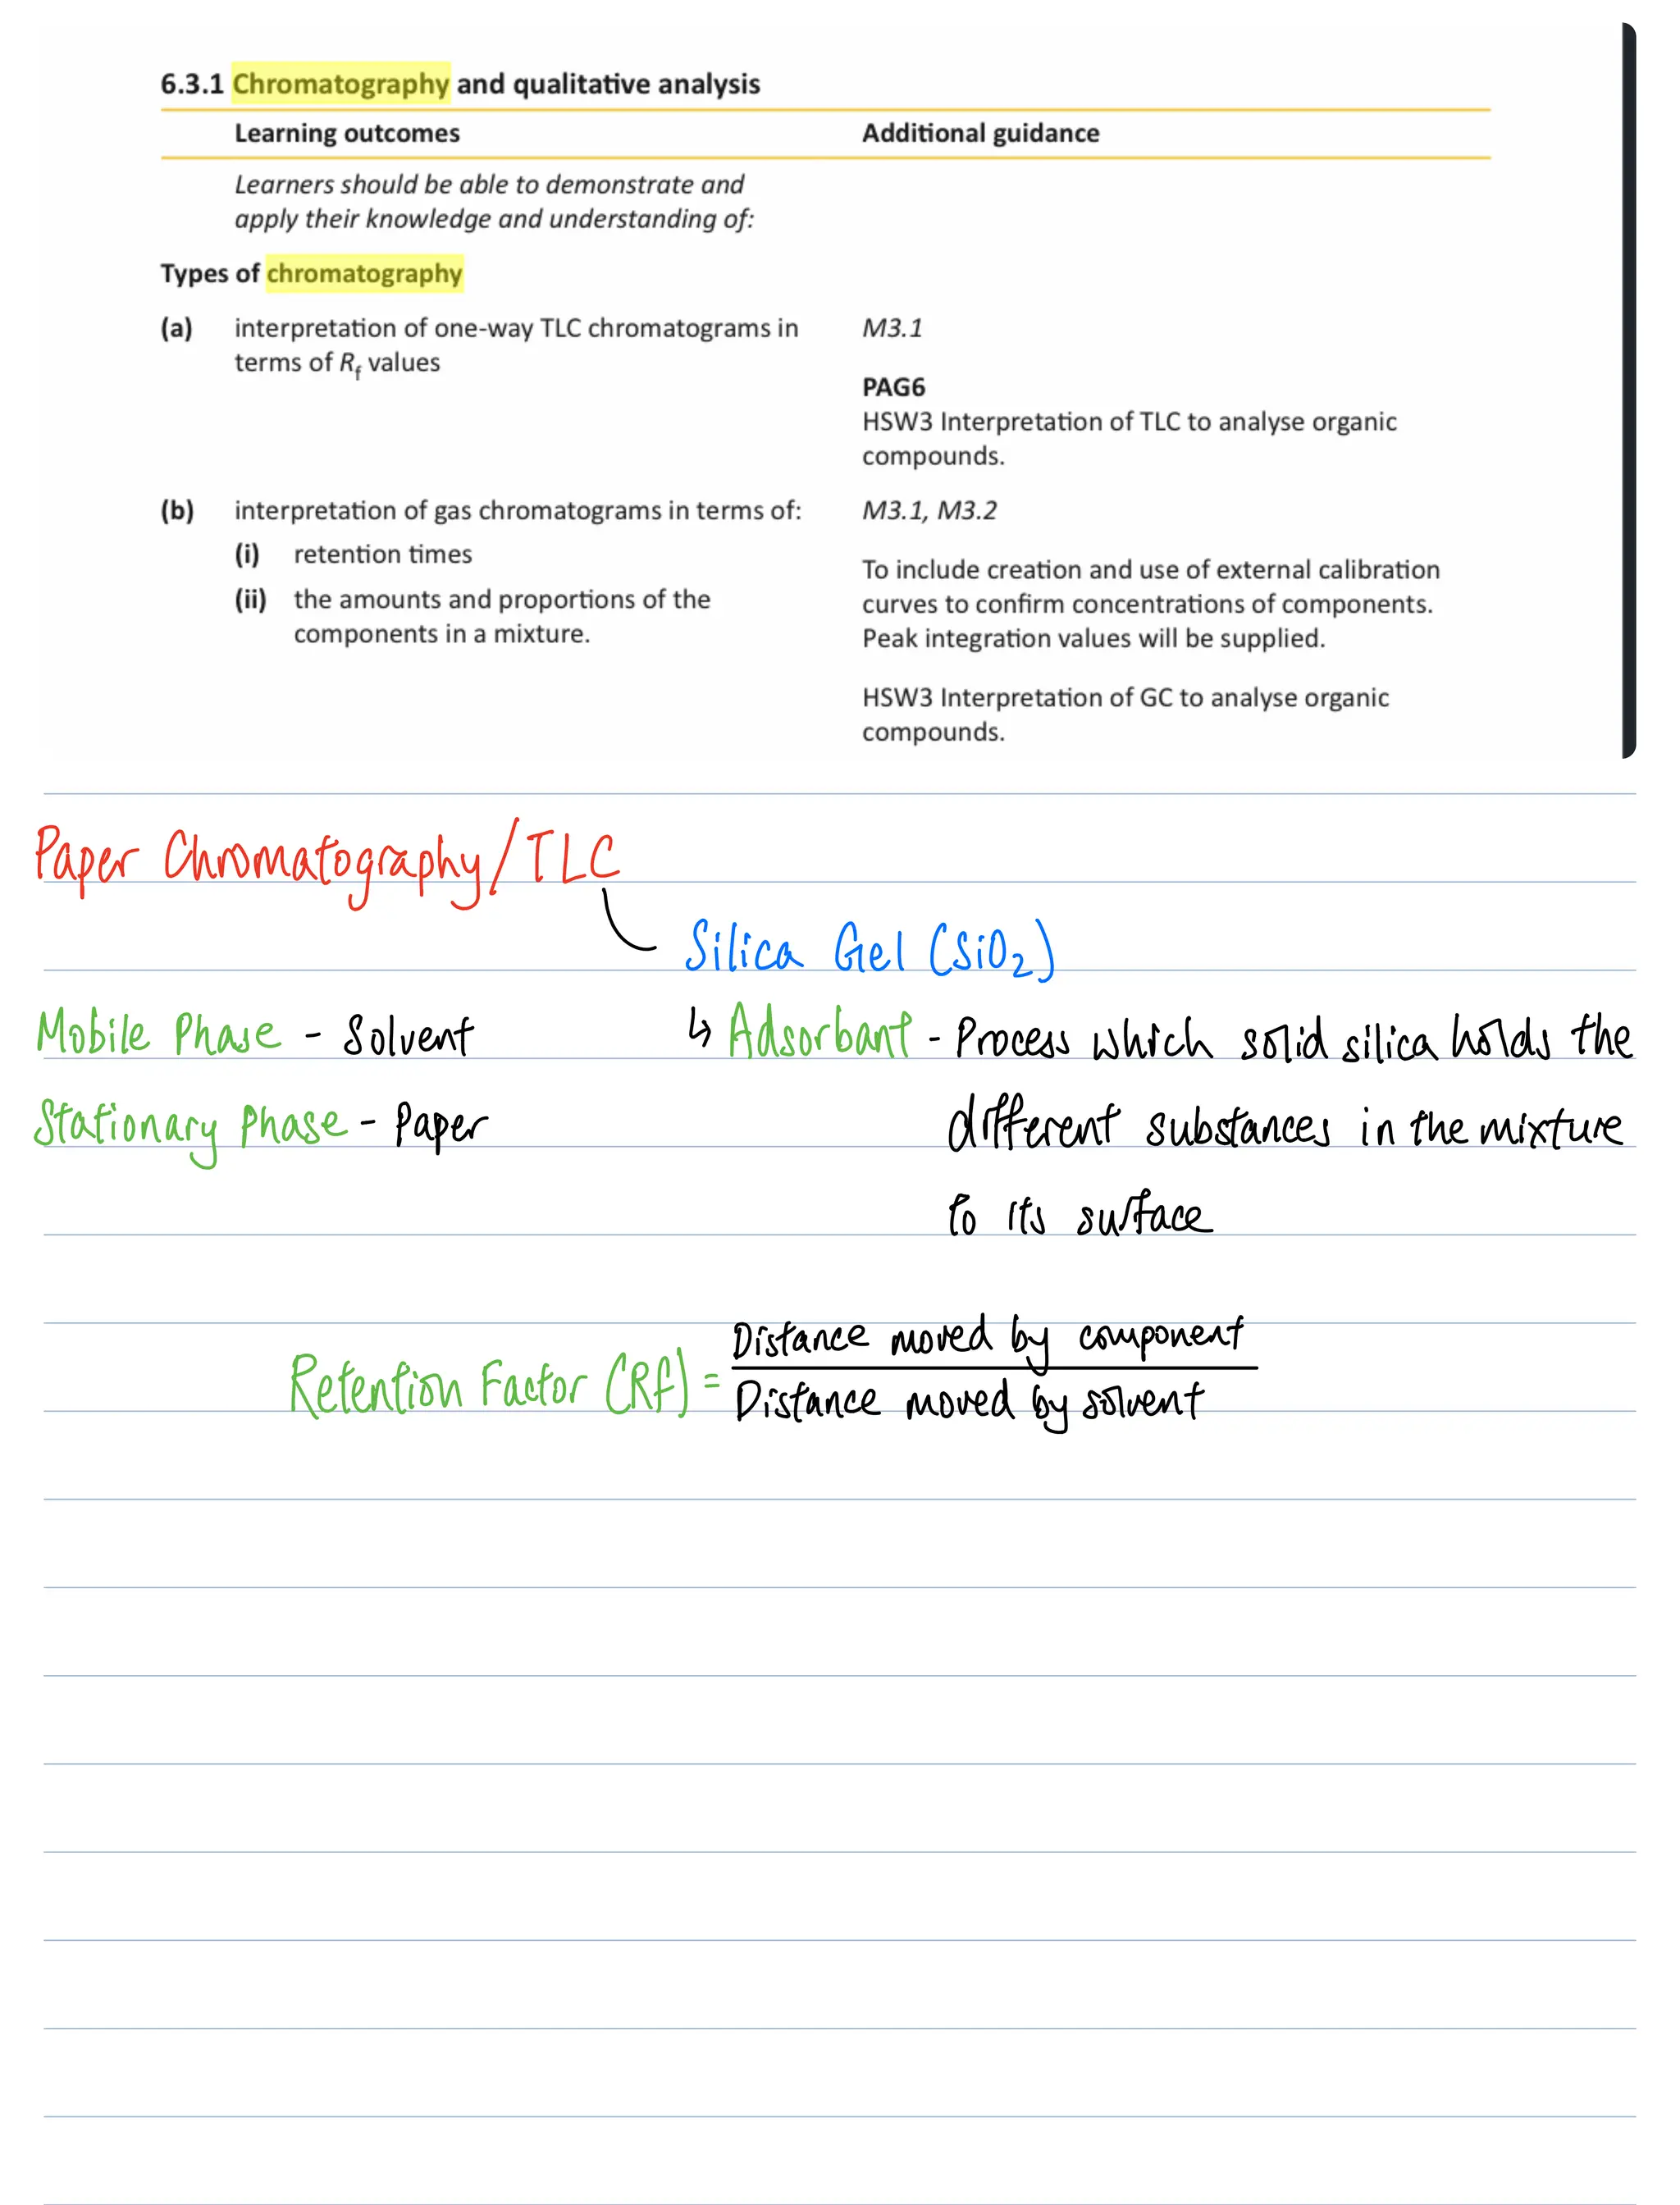 6.3.1 Chromatography and qualitative analysis
Learning outcomes Additional guidance
Learners should be able to demonstrate and
apply their knowledge and understanding of:
Types of chromatography
(a) interpretation of one-way TLC chromatograms in
terms of Rf values
M3.1
PAG6
HSW3 Interpretation of TLC to analyse organic
compounds.
(b) interpretation of gas chromatograms in terms of:
(i) retention times
(ii) the amounts and proportions of the
components in a mixture.
M3.1, M3.2
To include creation and use of external calibration
curves to confirm concentrations of components.
Peak integration values will be supplied.
HSW3 Interpretation of GC to analyse organic
compounds.
Paper Chromatography/TLC
Silica Gel (SiO₂)
Mobile Phase - Solvent
Stationary Phase - Paper
↳ Adsorbant - Process which solid silica holds the
different substances in the mixture
to its surface
Retention Factor (Rf) =
Distance moved by component
Distance moved by solvent